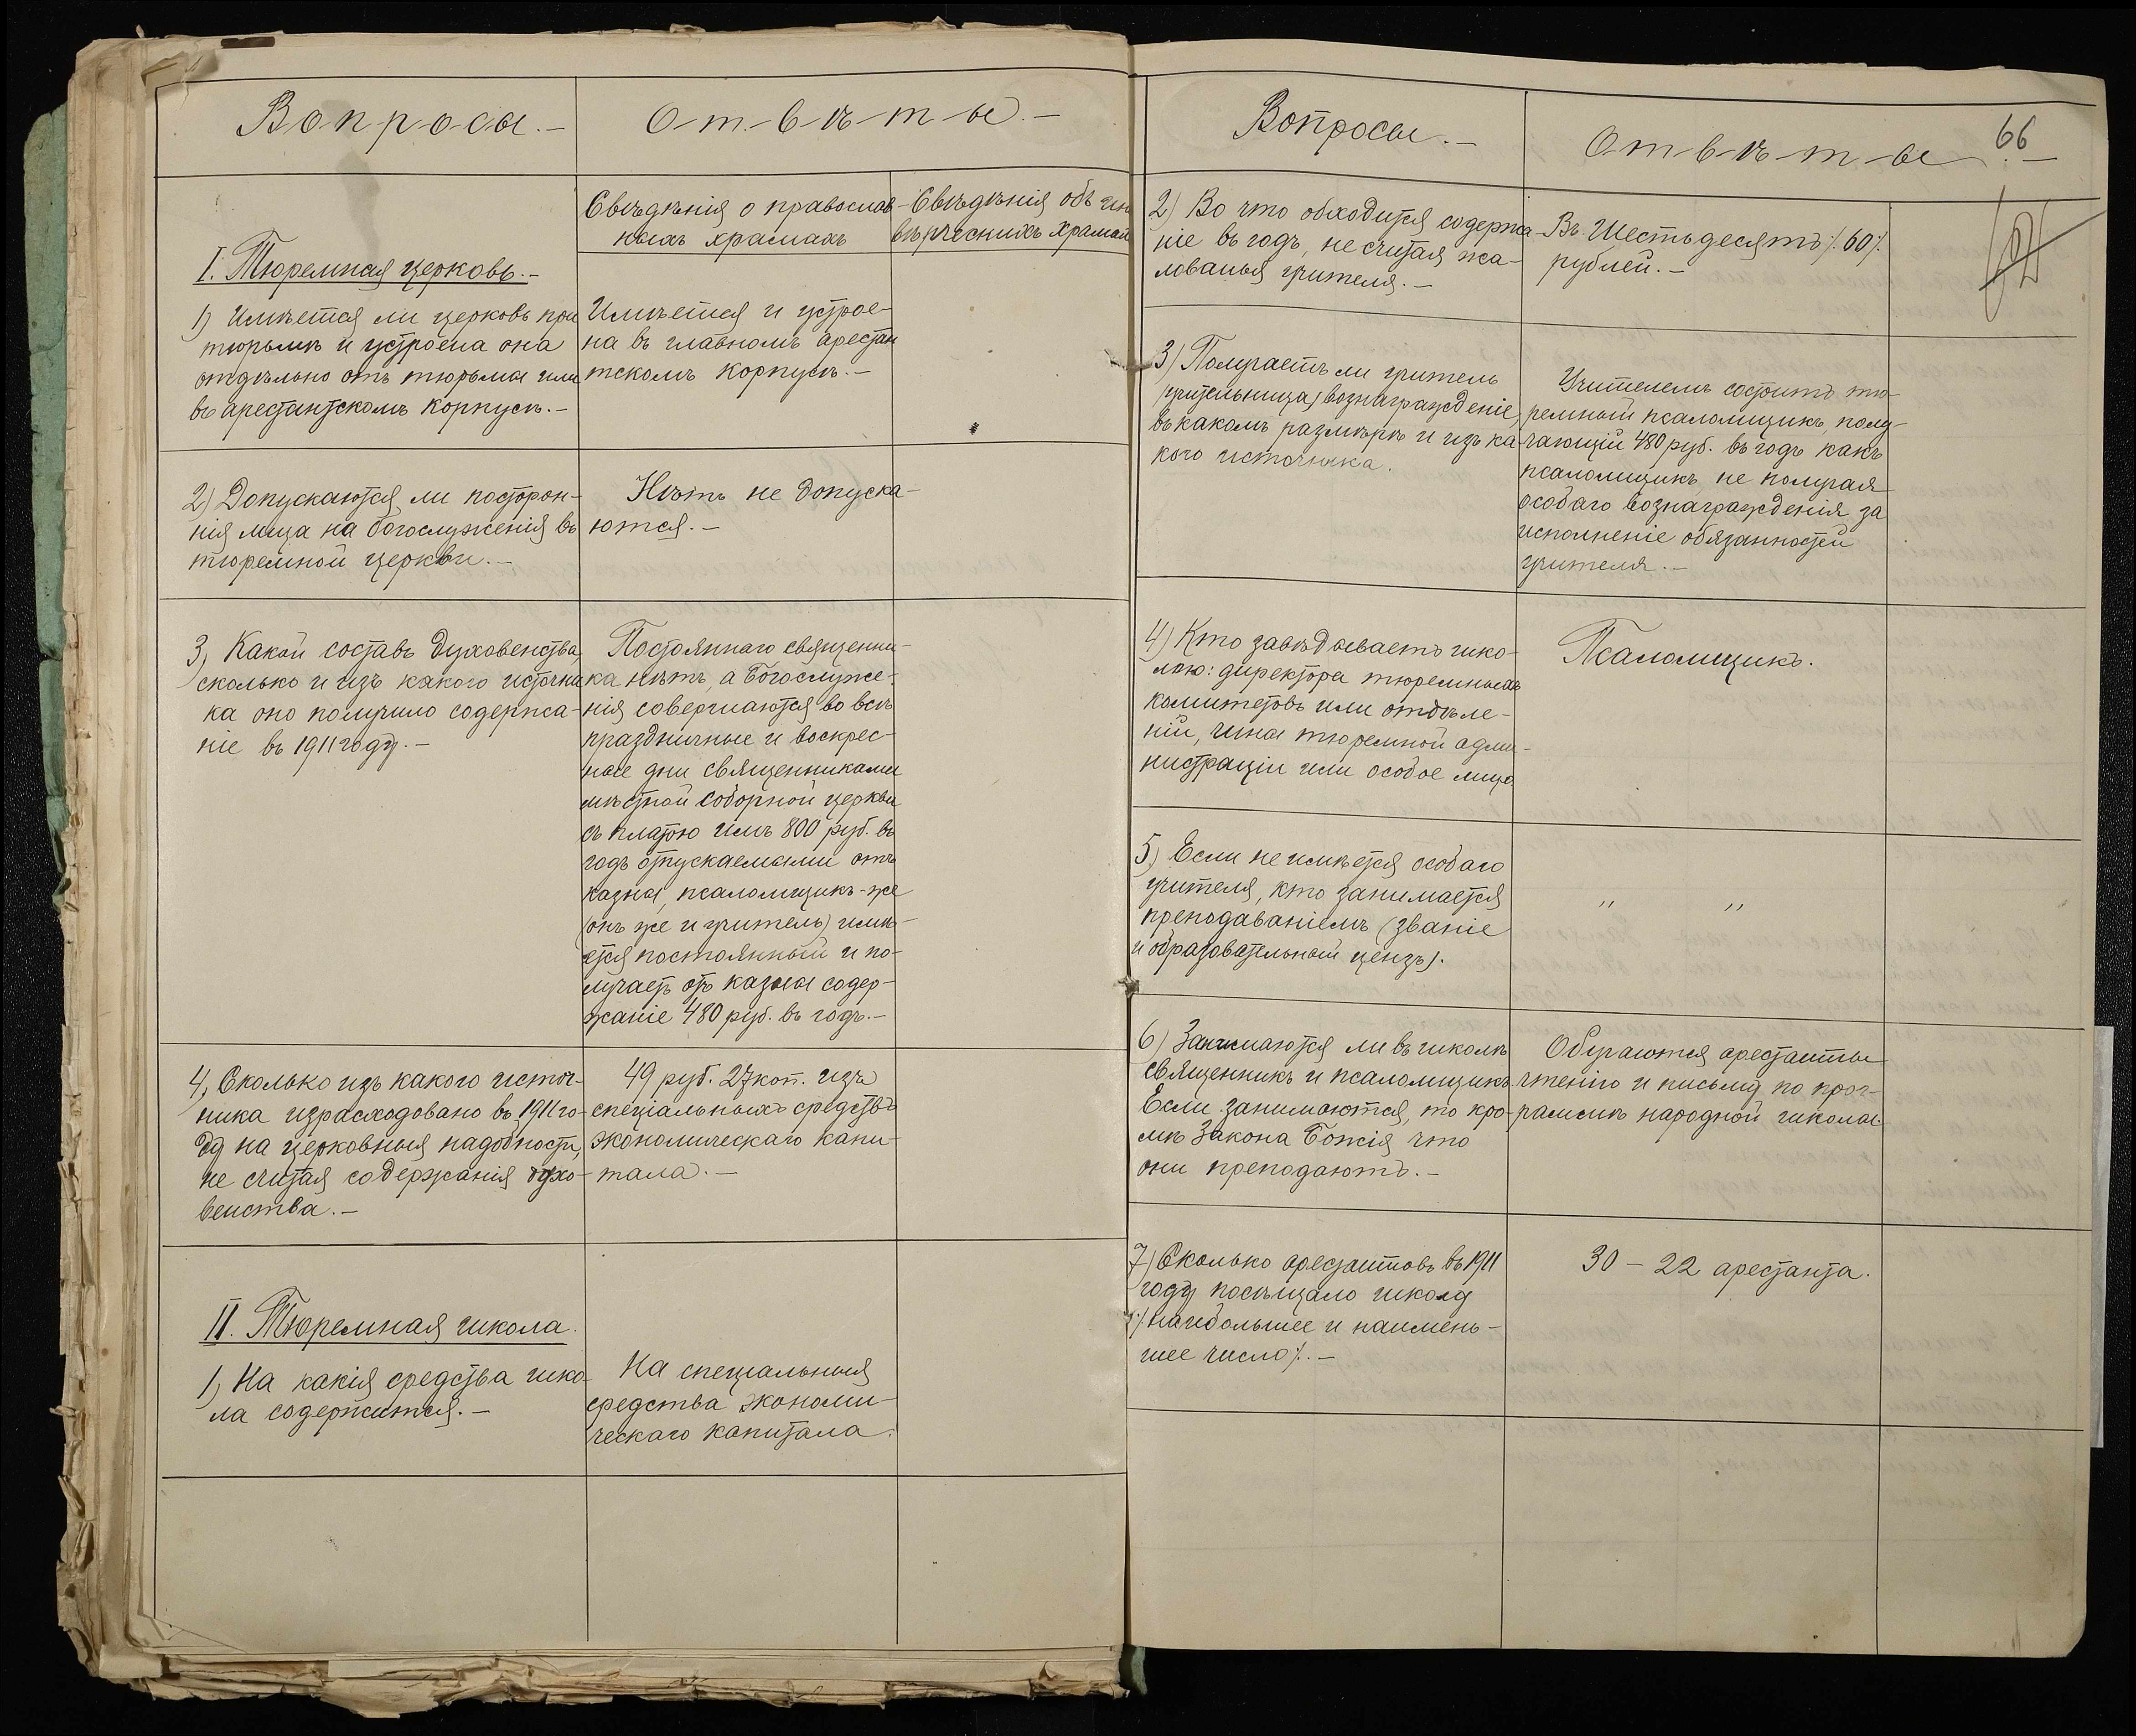 Вопросы.-
Отвѣты.-
Свѣдѣнія о православ-
ныхъ храмахъ
Свѣдѣнія объ ино
вѣрческихъ храмах
I. Тюремная церковь.-
1) Имѣется ли церковь при
тюрьмѣ и устроена она
отдѣльно отъ тюрьмы или
въ арестантскомъ корпусѣ.-
Имѣется и устрое-
на въ главномъ арестан
тскомъ корпусѣ.-
2) Допускаются ли посторон-
нія лица на богослуженія въ
тюремной церкви.-
Нѣтъ не допуска-
ются.-
3) Какой составъ духовенства,
сколько и изъ какого источни
ка оно получило содержа-
ніе въ 1911 году.-
Постояннаго священни-
ка нѣтъ, а Богослуже-
нія совершаются во всѣ
праздничные и воскрес-
ные дни священниками
мѣстной соборной церкви
съ платою имъ 800 руб. въ
годъ отпускаемыми отъ
казны, псаломщикъ-же
(онъ же и учитель) имѣ-
ется постоянный и по-
лучаетъ отъ казны содер-
жаніе 480 руб. въ годъ.-
4) Сколько изъ какого источ-
ника израсходовано въ 1911 го-
ду на церковныя надобности,
не считая содержанія духо-
венства.-
49 руб. 27 коп. изъ
спеціальныхъ средствъ
экономическаго капи-
тала.-
II. Тюремная школа.
1) На какія средства шко-
ла содержится.-
На спеціальныя
средства экономи-
ческаго капитала.
Вопросы.-
Отвѣты.-
66
2) Во что обходится содержа-
ніе въ годъ, не считая жа-
лованья учителя.-
Въ Шестьдесятъ /.60/.
рублей.-
3) Получаетъ ли учитель
(учительница) вознагражденіе,
въ какомъ размѣрѣ и изъ ка-
кого источника.
Учителемъ состоитъ тю-
ремный псаломщикъ, полу-
чающій 480 руб. въ годъ какъ
псаломщикъ, не получая
особаго вознагражденія за
исполненіе обязанностей
учителя.-
4) Кто завѣдываетъ шко-
лою: директора тюремныхъ
комитетовъ или отдѣле-
ній, чины тюремной адми-
нистраціи или особое лицо
Псаломщикъ.
5) Если не имѣется особаго
учителя, кто занимается
преподаваніемъ (званіе
и образовательный цензъ).
" "
6) Занимаются ли въ школѣ
священникъ и псаломщикъ.
Если занимаются, то кро-
мѣ Закона Божія что
они преподаютъ.-
Обучаются арестанты
чтенію и письму по прог-
раммѣ народной школы.
7) Сколько арестантовъ въ 1911
году посѣщало школу
/.наибольшее и наимень-
шее число/.-
30 - 22 арестанта.